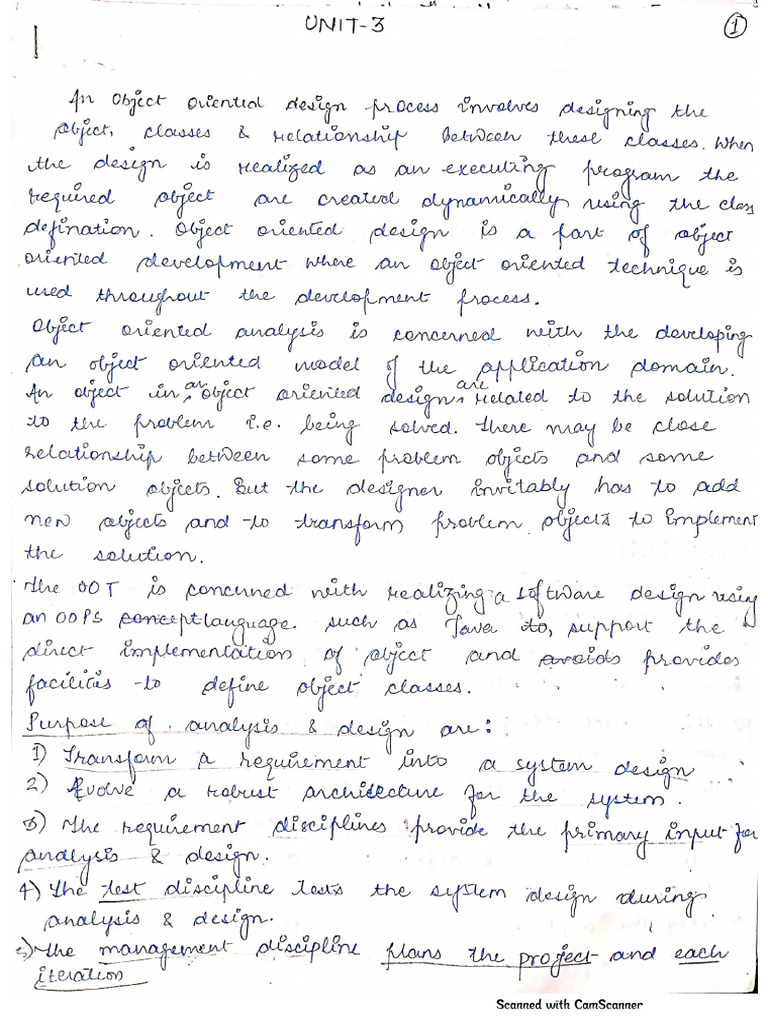 UNIT-3
1
An Object oriented design process involves designing the
object, classes & relationship between these classes. When
the design is realized as an executing program the
required object are created dynamically using the class
defination. Object oriented design is a part of object
oriented development where an object oriented technique is
used throughout the development process.
Object oriented analysis is concerned with the developing
an object oriented model of the application domain.
An object in an object oriented design are related to the solution
to the problem i.e. being solved. There may be close
relationship between some problem objects and some
solution objects. But the designer invitably has to add
new objects and to transform problem objects to implement
the solution.
The OOT is concerned with realizing a software design using
an OOPS concept language. such as Java to, support the
direct implementation of object and avoids provides
facilities to define object classes.
Purpose of analysis & design are:
1) Transform a requirement into a system design
2) Evolve a robust architecture for the system.
3) The requirement disciplines provide the primary input for
analysis & design.
4) The test discipline tests the system design during
analysis & design.
5) The management discipline plans the project and each
iteration
Scanned with CamScanner